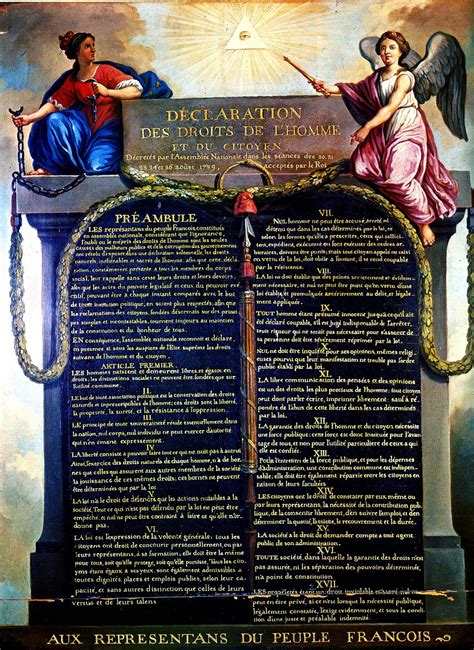 DÉCLARATION
DES DROITS DE L'HOMME
ET DU CITOYEN
Décretés par l'Assemblée Nationale dans les séances des 20, 21
23, 24 et 26 août 1789, acceptés par le Roi
PRÉAMBULE
LES représentans du peuple François, constitués
en assemblée nationale, considérant que l'ignorance,
l'oubli ou le mépris des droits de l'homme sont les seules
causes des malheurs publics et de la corruption des gouvernemens
ont résolu d'exposer dans une déclaration solemnelle, les droits
naturels, inaliénables et sacrés de l'homme; afin que cette décla-
ration, constamment présente a tous les membres du corps
social, leur rappelle sans cesse leurs droits et leurs devoirs;
afin que les actes du pouvoir legislatif et ceux, du pouvoir exé-
cutif, pouvant être a chaque instant comparés avec le but
de toute institution politique, en soient plus respectés; afin que
les réclamations des citoyens, fondées désormais sur des prin-
cipes simples et incontestables, tournent toujours au maintien
de la constitution et du bonheur de tous.
EN conséquence, l'assemblée nationale reconnoit et déclare,
en presence et sous les auspices de l'Etre suprême les droits
suivans de l'homme et du citoyen.
ARTICLE PREMIER.
LES hommes naissent et demeurent libres et égaux en
droits; les distinctions sociales ne peuvent être fondées que sur
l'utilité commune.
II.
LE but de toute association politique est la conservation des droits
naturels et imprescriptibles de l'homme; ces droits sont la liberté,
la propriété, la sureté, et la résistance à l'oppression.
III.
LE principe de toute souveraineté réside essentiellement dans
la nation, nul corps, nul individu ne peut exercer d'autorité
qui n'en émane expressement.
IV.
LA liberté consiste a pouvoir faire tout ce qui ne nuit pas à autrui
Ainsi, l'exercice des droits naturels de chaque homme, n'a de bor-
nes que celles qui assurent aux autres membres de la société
la jouissance de ces mêmes droits; ces bornes ne peuvent
être déterminées que par la loi.
V.
LA loi n'a le droit de défendre que les actions nuisibles a la
société. Tout ce qui n'est pas défendu par la loi ne peut être
empêché, et nul ne peut être contraint à faire ce qu'elle n'or-
donne pas.
VI.
LA loi est l'expression de la volonté générale; tous les
citoyens ont droit de concourir personnellement, ou par
leurs représentans, à sa formation; elle doit être la même
pour tous, soit qu'elle protege, soit qu'elle punisse. Tous les cito-
yens étans égaux à ses yeux, sont également admissibles à
toutes dignités, places et emplois publics, selon leur capa-
cité, et sans autres distinction que celles de leurs
vertus et de leurs talens.
VII.
NUL homme ne peut être accusé, arreté, ni
détenu que dans les cas déterminés par la loi, et
selon les formes qu'elle a prescrites, ceux qui sollici-
tent, expédient, exécutent ou font exécuter des ordres ar-
bitraires, doivent être punis; mais tout citoyen appelé ou saisi
en vertu de la loi, doit obéir a l'instant, il se rend coupable
par la résistance.
VIII.
LA loi ne doit établir que des peines strictement et evidem-
ment nécessaires, et nul ne peut être puni qu'en vertu d'une
loi établie et promulguée antérieurement au délit, et légale-
ment appliquée.
IX.
TOUT homme étant présumé innocent jusqu'à ce qu'il ait
été déclaré coupable, s'il est jugé indispensable de l'arrêter,
toute rigueur qui ne serait pas nécessaire pour s'assurer de
sa personne doit être sévérement réprimée par la loi.
X.
NUL ne doit être inquiété pour ses opinions, mêmes religi-
euses pourvu que leur manifestation ne trouble pas l'ordre
public établi par la loi.
XI.
LA libre communication des pensées et des opinions
est un des droits les plus precieux de l'homme; tout citoyen
peut donc parler, écrire, imprimer librement; sauf à ré-
pondre de l'abus de cette liberté dans les cas déterminés
par la loi.
XII.
LA garantie des droits de l'homme et du citoyen nécessite
une force publique; cette force est donc instituée pour l'avan-
tage de tous, et non pour l'utilité particuliere de ceux a qui
elle est confiée.
XIII.
Pour l'entretien de la force publique, et pour les dépenses
d'administration, une contribution commune est indispen-
sable; elle doit être également répartie entre les citoyens en
raison de leurs facultés.
XIV.
LES citoyens ont le droit de constater par eux même ou
par leurs représentans, la nécessité de la contribution pub-
lique, de la consentir librement, d'en suivre l'emploi, et d'en déter-
miner la quotité, l'assiette, le recouvrement et la durée.
XV.
LA société a le droit de demander compte a tout agent
public de son administration.
XVI.
TOUTE société, dans laquelle la garantie des droits n'est pas
assurée, ni la séparation des pouvoirs déterminée,
n'a point de constitution.
XVII.
LES propriétés étant un droit inviolable et sacré, nul ne
peut en être privé, si ce n'est lorsque la nécessité publique,
légalement constatée, l'exige évidemment, et sous la condition
d'une juste et préalable indemnité.
AUX REPRESENTANS DU PEUPLE FRANCOIS